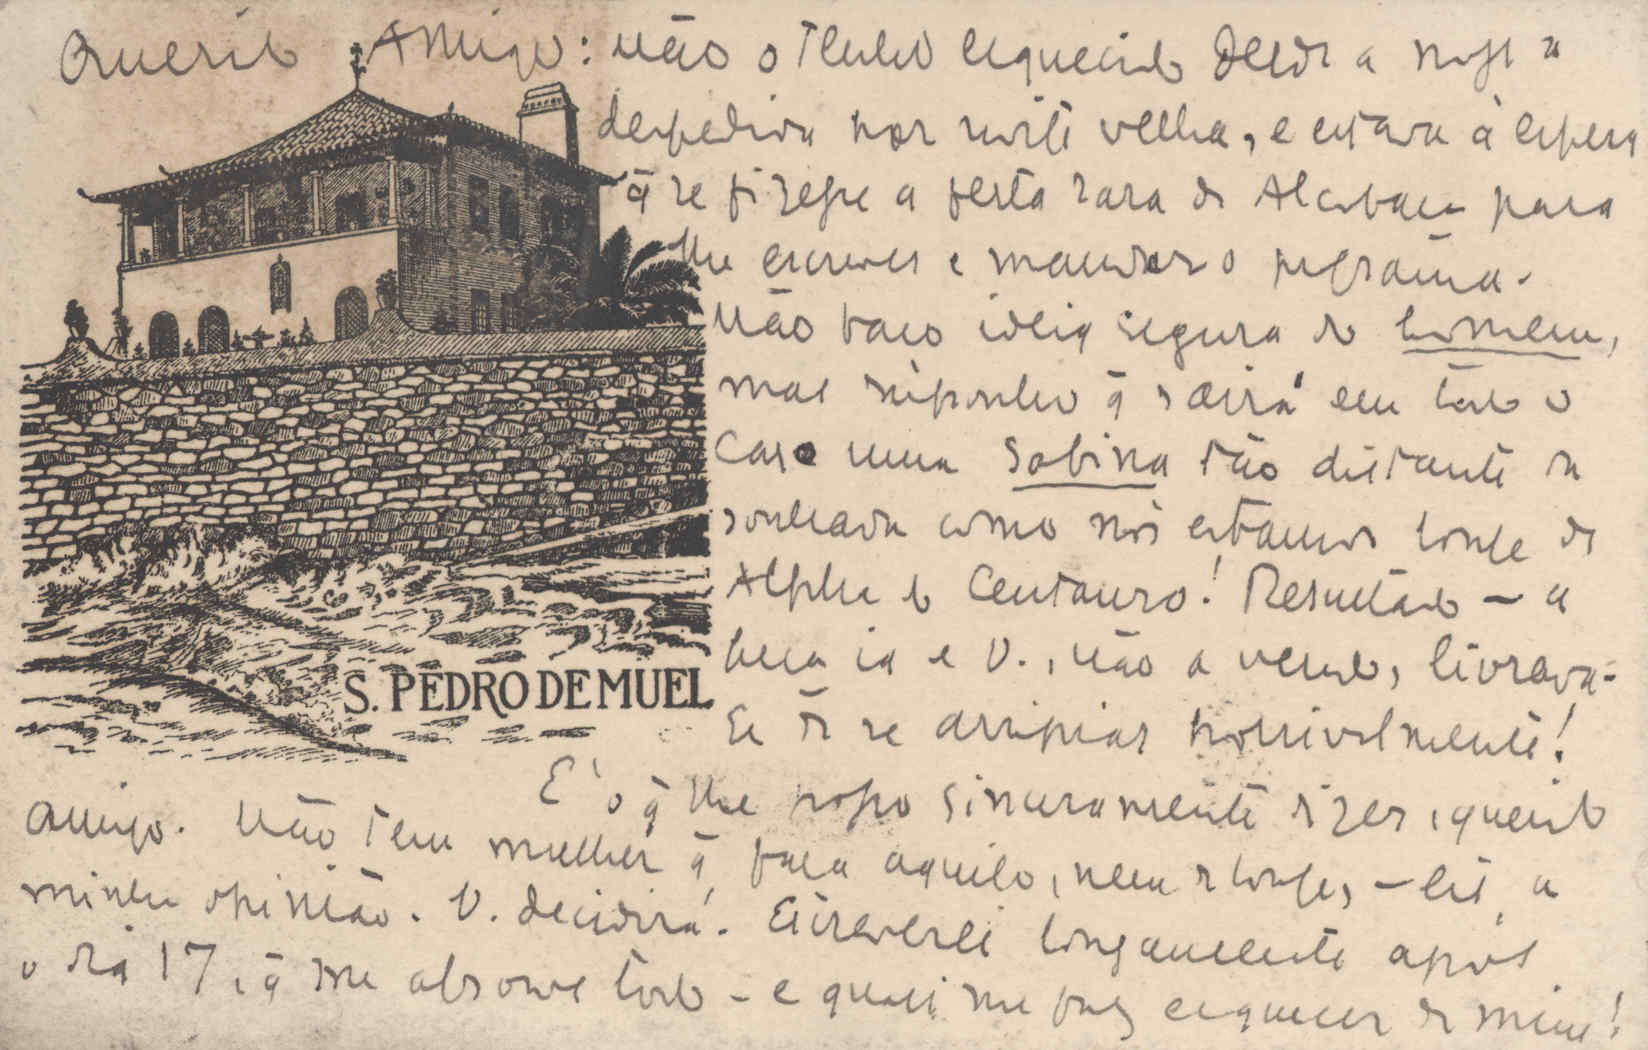 Querido Amigo: não o tenho esquecido desde a nossa
despedida por noite velha, e estava à espera
q̃ se fizesse a festa rara de Alcobaça para
lhe escrever e mandar o programa.
Não faço ideia segura do homem,
mas suponho q̃ sairá em todo o
caso uma Sabina tão distante da
sonhada como nós estamos longe de
Alpha do Centauro! Resultado – a
peça ia e V., não a vendo, livrava-
se de se arripiar horrivelmente!
E' o q̃ lhe posso sinceramente dizer, querido
amigo. Não tem mulher q̃ faça aquilo, nem de longe, – eis a
minha opinião. V. decidirá. Escreverei longamente após
o dia 17, q̃ me absorve todo – e quasi me faz esquecer de mim!
S. PEDRO DE MUEL